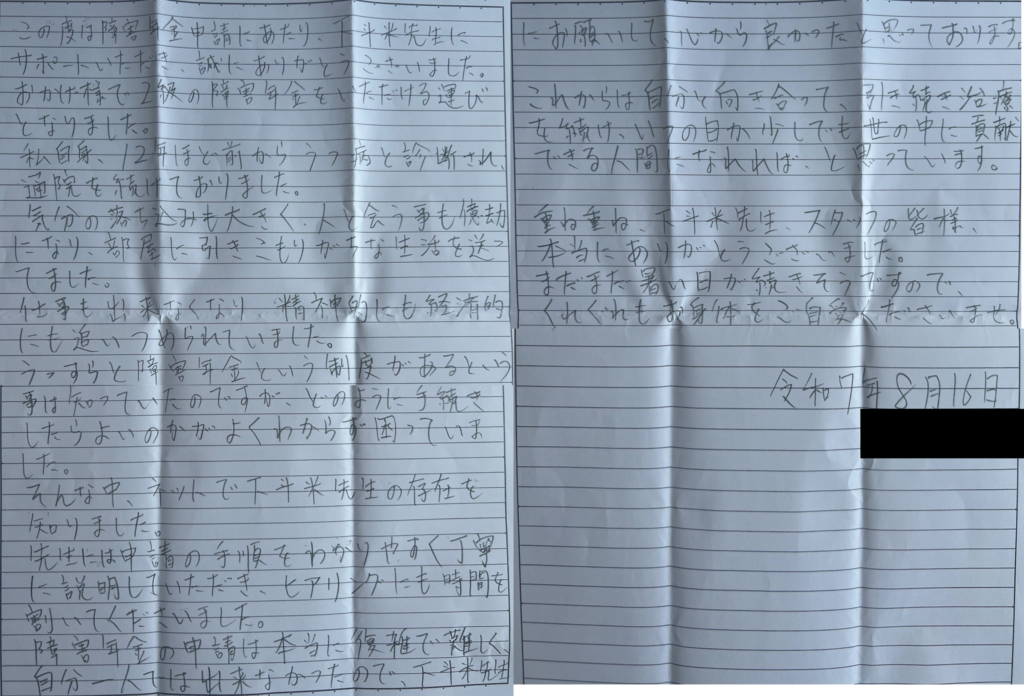 この度は障害年金申請にあたり、下斗米先生に
サポートいただき、誠にありがとうございました。
おかげ様で2級の障害年金をいただける運び
となりました。
私自身、12年ほど前からうつ病と診断され、
通院を続けておりました。
気分の落ち込みも大きく、人と会う事も億劫
になり、部屋に引きこもりがちな生活を送っ
てました。
仕事も出来なくなり、精神的にも経済的
にも追いつめられていました。
うっすらと障害年金という制度があるという
事は知っていたのですが、どのように手続き
したらよいのかがよくわからず困っていま
した。
そんな中、ネットで下斗米先生の存在を
知りました。
先生には申請の手順をわかりやすく丁寧
に説明していただき、ヒアリングにも時間を
割いてくださいました。
障害年金の申請は本当に復雑で難しく、
自分一人では出来なかったので、下斗米先生
にお願いして、心から良かったと思っております。
これからは自分と向き合って、引き続き治療
を続け、いつの日か少しでも世の中に貢献
できる人間になれれば、と思っています。
重ね重ね、下斗米先生、スタッフの皆様、
本当にありがとうございました。
まだまだ暑い日が続きそうですので、
くれぐれもお身体をご自愛くださいませ。
令和7年8月16日